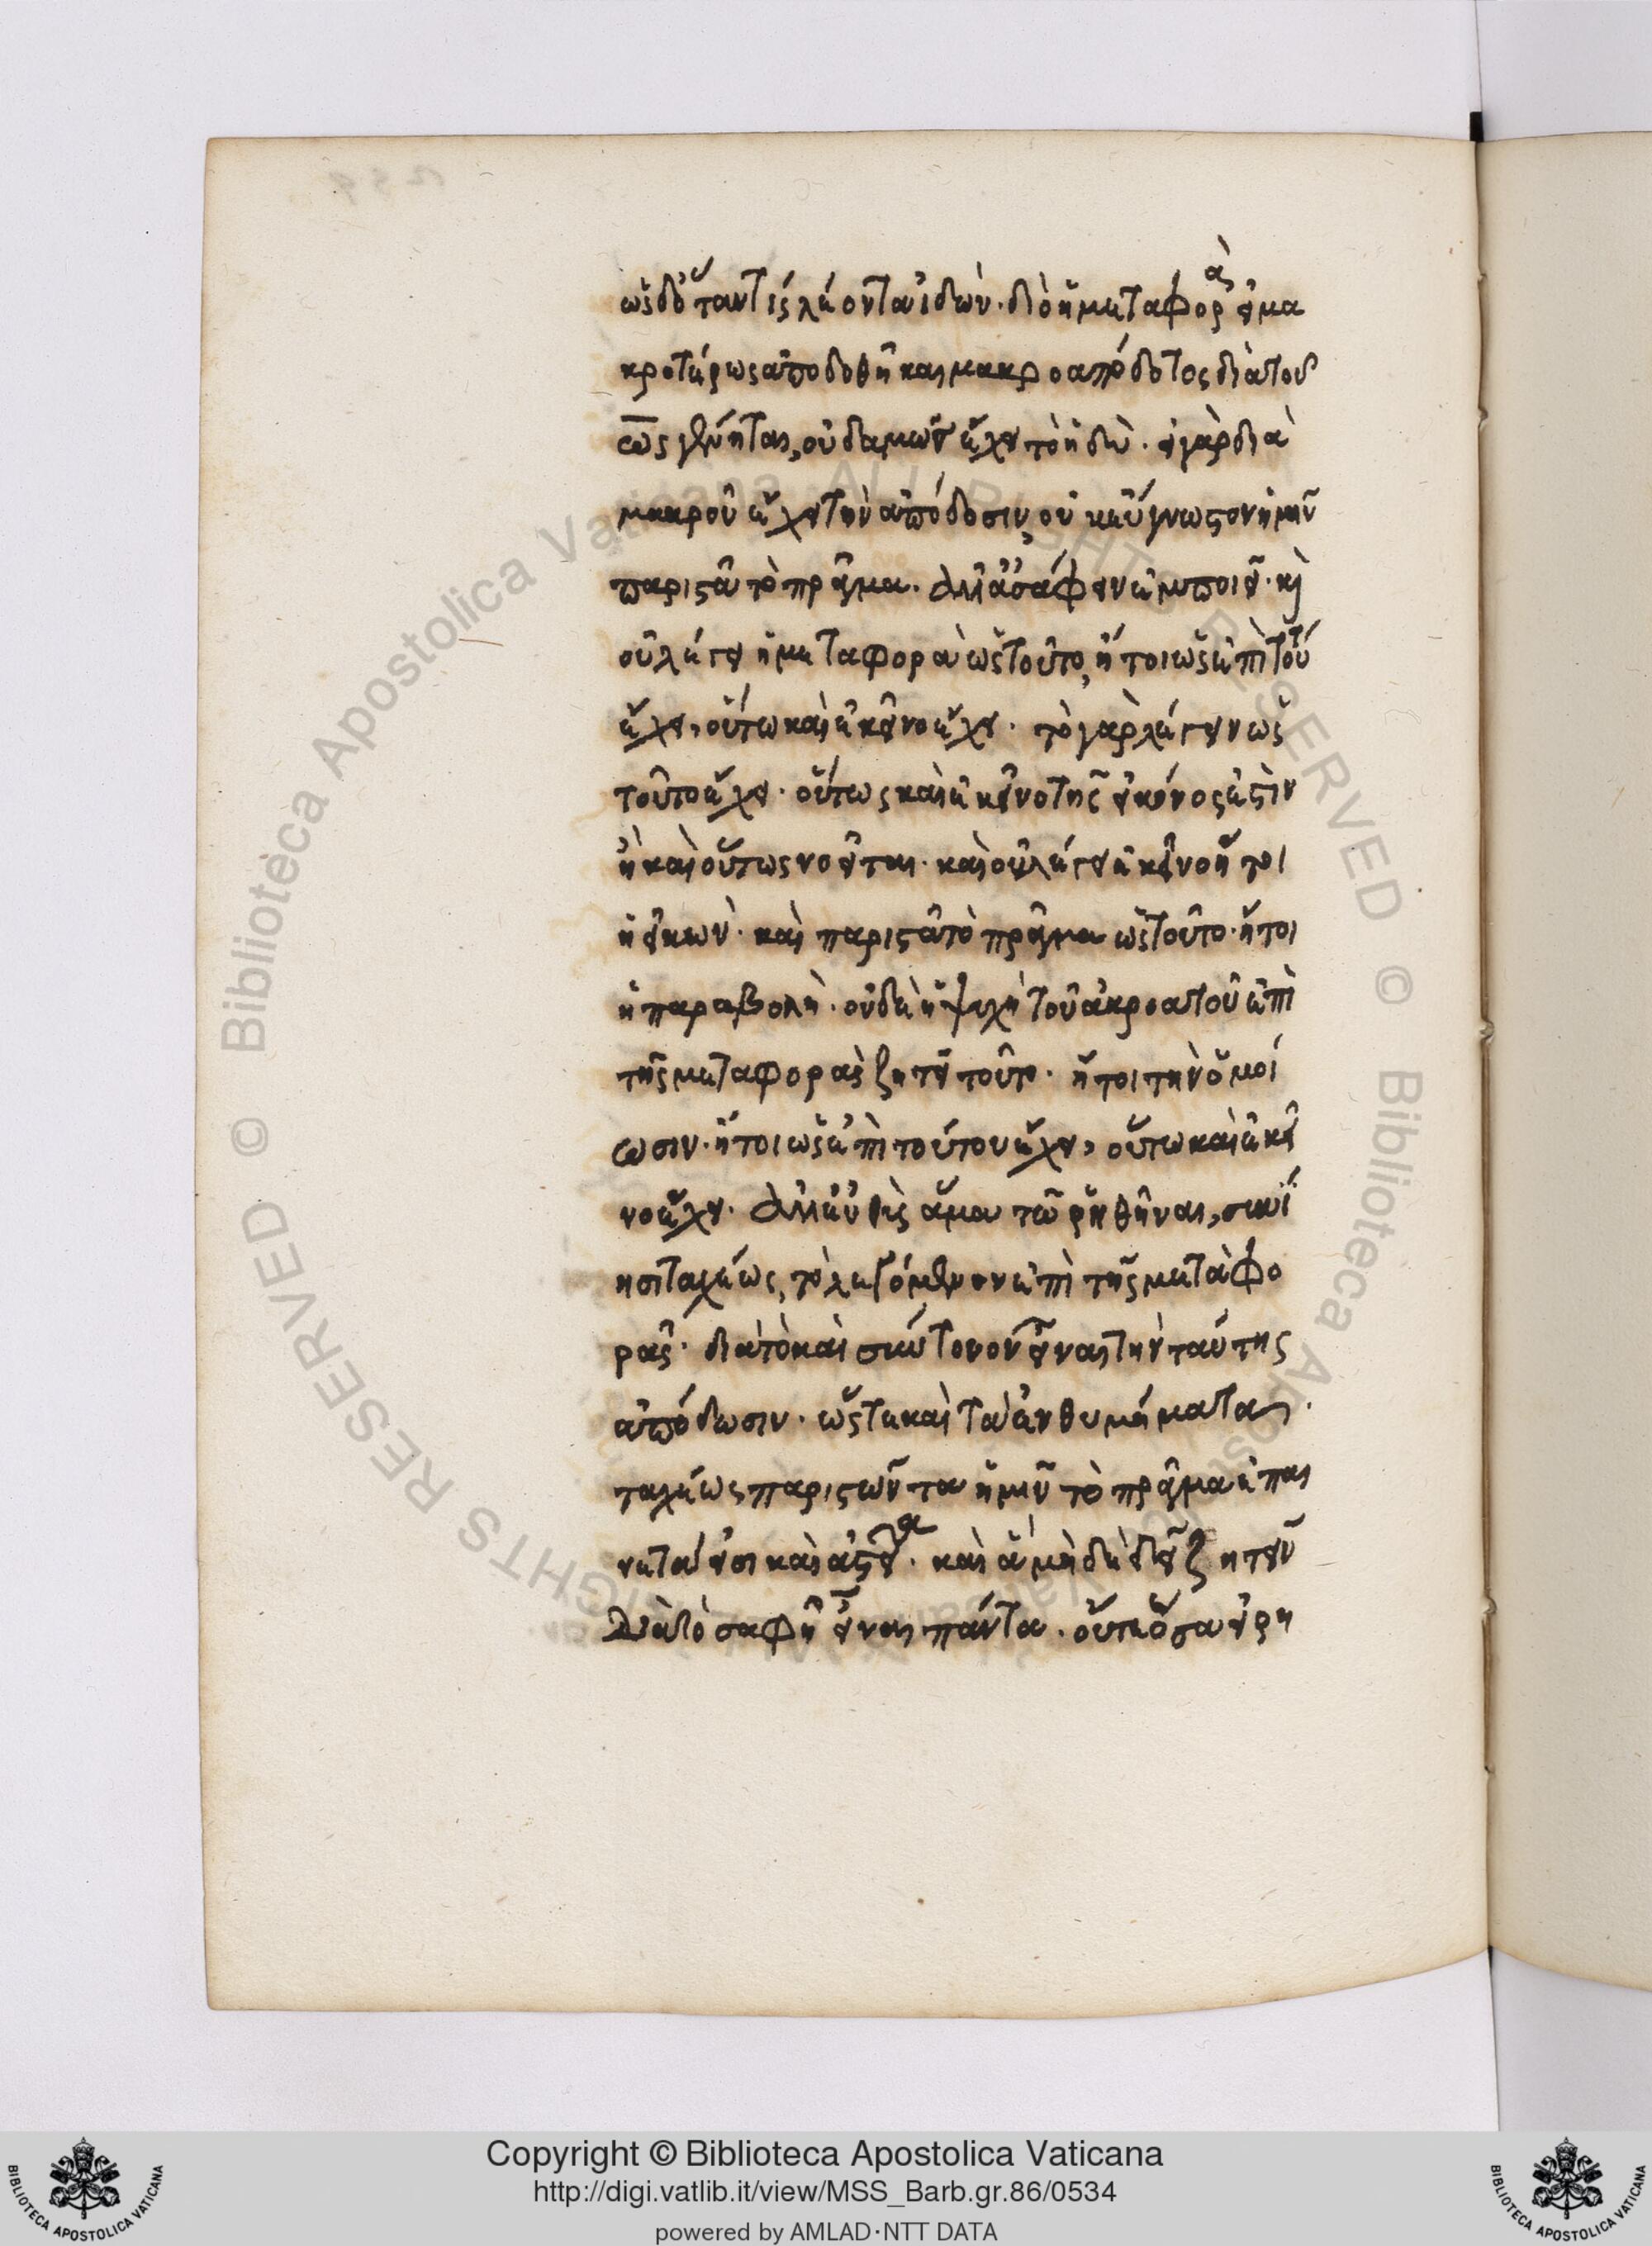 ὡς δ' ὅταν τίς λέοντα ἰδών· διὸ ἡ μεταφορὰ εἰ μα
κροτέρως ἀποδοθῆ καὶ μακροαπόδοτος διὰ τοῦ
ὡς γένηται, οὐδαμῶς ἔχει τὸ ἡδύ· εἰ γὰρ διὰ
μακροῦ ἔχει τὴν ἀπόδοσιν, οὐκ εὔγνωστον ἡμῖν
παριστᾶ τὸ πρᾶγμα· ἀλλ' ἀσάφειαν ἐμποιεῖ· κὶ
οὐ λέγει ἡ μεταφορὰ ὡς τοῦτο, ἤτοι ὡς ἐπὶ τού
ἔχει, οὕτω καὶ ἐκεῖνο ἔχει· τὸ γὰρ λέγειν ὡς
τοῦτο ἔχει· οὕτως καὶ ἐκεῖνο τῆς εἰκόνος ἐστὶν
ἡ καὶ οὕτως νοεῖται· καὶ οὐ λέγει ἐκεῖνο ἤτοι
ἡ εἰκών· καὶ παριστᾶ τὸ πρᾶγμα ὡς τοῦτο· ἤτοι
ἡ παραβολή· οὐδὲ ἡ ψυχὴ τοῦ ἀκροατοῦ ἐπὶ
τῆς μεταφορὰς ζητεῖ τοῦτο· ἤτοι τὴν ὁμοί
ωσιν· ἤτοι ὡς ἐπὶ τούτου ἔχει, οὕτω καὶ ἐκεῖ
νο ἔχει· ἀλλ' εὐθὺς ἅμα τῶ ῥηθῆναι, συνί
ησι ταχέως, τὸ λεγόμενον ἐπὶ τῆς μεταφο
ρᾶς· διὰ τὸ καὶ σύντονον εἶναι τὴν ταύτης
ἀπόδωσιν· ὥστε καὶ τὰ ἐνθυμήματα
ταχέως παριστῶντα ἡμῖν τὸ πρᾶγμα ἐπαι
νετά εἰσι καὶ ἀστεῖα· καὶ ἃ μὴ δὲ δεῖ ζητεῖν
διὰ τὸ σαφῆ εἶναι πάντα· οὔτε ὅσα εἰρη
Copyright © Biblioteca Apostolica Vaticana
http://digi.vatlib.it/view/MSS_Barb.gr.86/0534
powered by AMLAD·NTT DATA